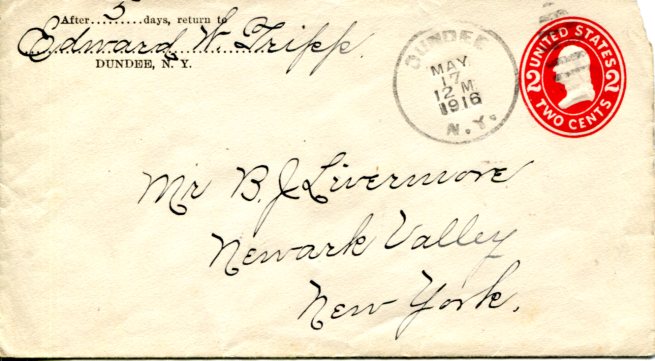 After.....5......days, return to
Edward W. Tripp.
DUNDEE, N. Y.
DUNDEE
MAY
17
12 M
1916
N.Y.
UNITED STATES
2 2
TWO CENTS
Mr B. J. Livermore
Newark Valley
New York.